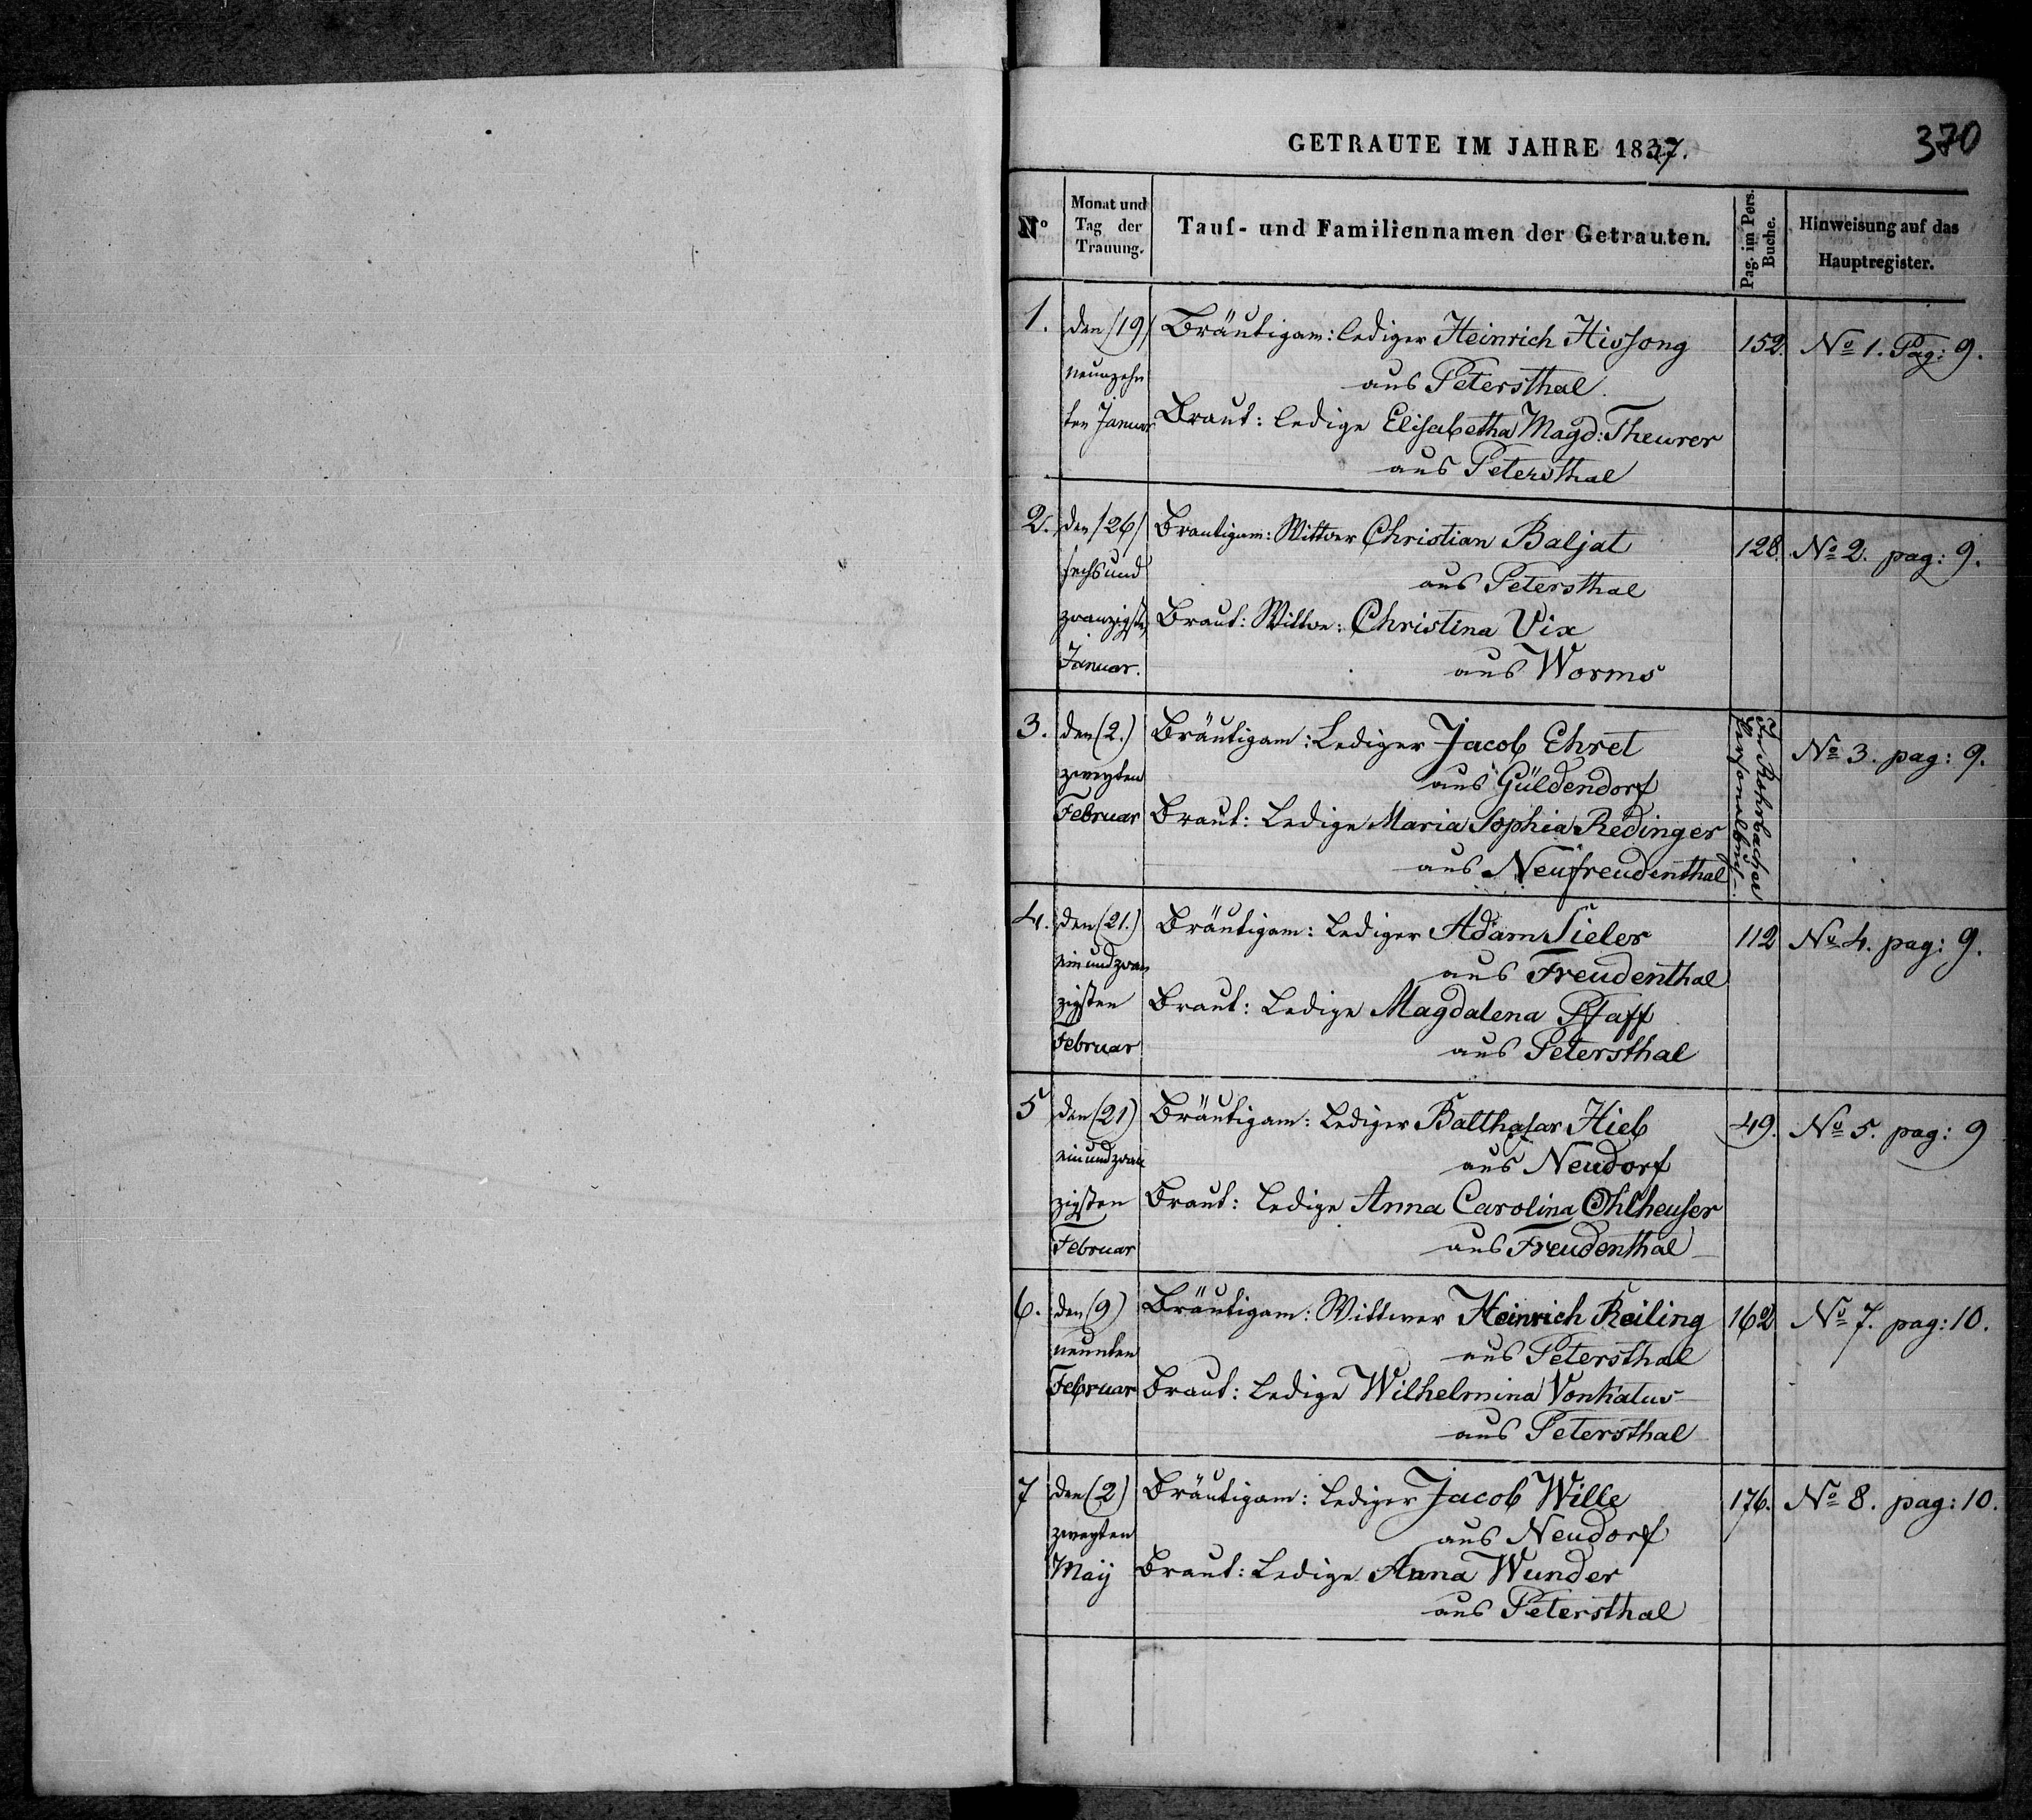 370
GETRAUTE IM JAHRE 1837.
No
Monat und
Tag der
Trauung.
Tauf- und Familiennamen der Getrauten.
Pag. im Pers.
Buche.
Hinweisung auf das
Hauptregister.
1. den /19/ Bräutigam: lediger Heinrich Hissong 152. No 1. Pag: 9.
neunzehn aus Petersthal.
ten Januar Braut: ledige Elisabetha Magd: Theurer
aus Petersthal
2. den /26/ Brautigam: Wittwer Christian Baljat 128. No 2. pag: 9.
sechsund aus Petersthal
zwanzigsten Braut: Wittwe: Christina Vix
Januar. aus Worms
3. den (2.) Bräutigam: Lediger Jacob Ehret No 3. pag: 9.
zweyten aus Güldendorf
Februar Braut: Ledige Maria Sophia Redinger
aus Neufreudenthal
Im Rohrbacher
Personalbuch
4. den (21.) Bräutigam: Lediger Adam Sieler 112 No 4. pag: 9.
ein und zwan aus Freudenthal
zigsten Braut: Ledige Magdalena Pfaff
Februar aus Petersthal
5 den (21) Bräutigam: Lediger Balthasar Hieb 49. No 5. pag: 9
ein und zwan aus Neudorf
zigsten Braut: Ledige Anna Carolina Ohlheuser
Februar aus Freudenthal
6. den (9) Bräutigam: Wittwer Heinrich Reiling 162 No 7. pag: 10.
neunten aus Petersthal
Februar Braut: Ledige Wilhelmina Vonkatus
aus Petersthal
7 den (2) Bräutigam: Lediger Jacob Wille 176. No 8. pag: 10.
zweyten aus Neudorf
Maij Braut: Ledige Anna Wunder
aus Petersthal